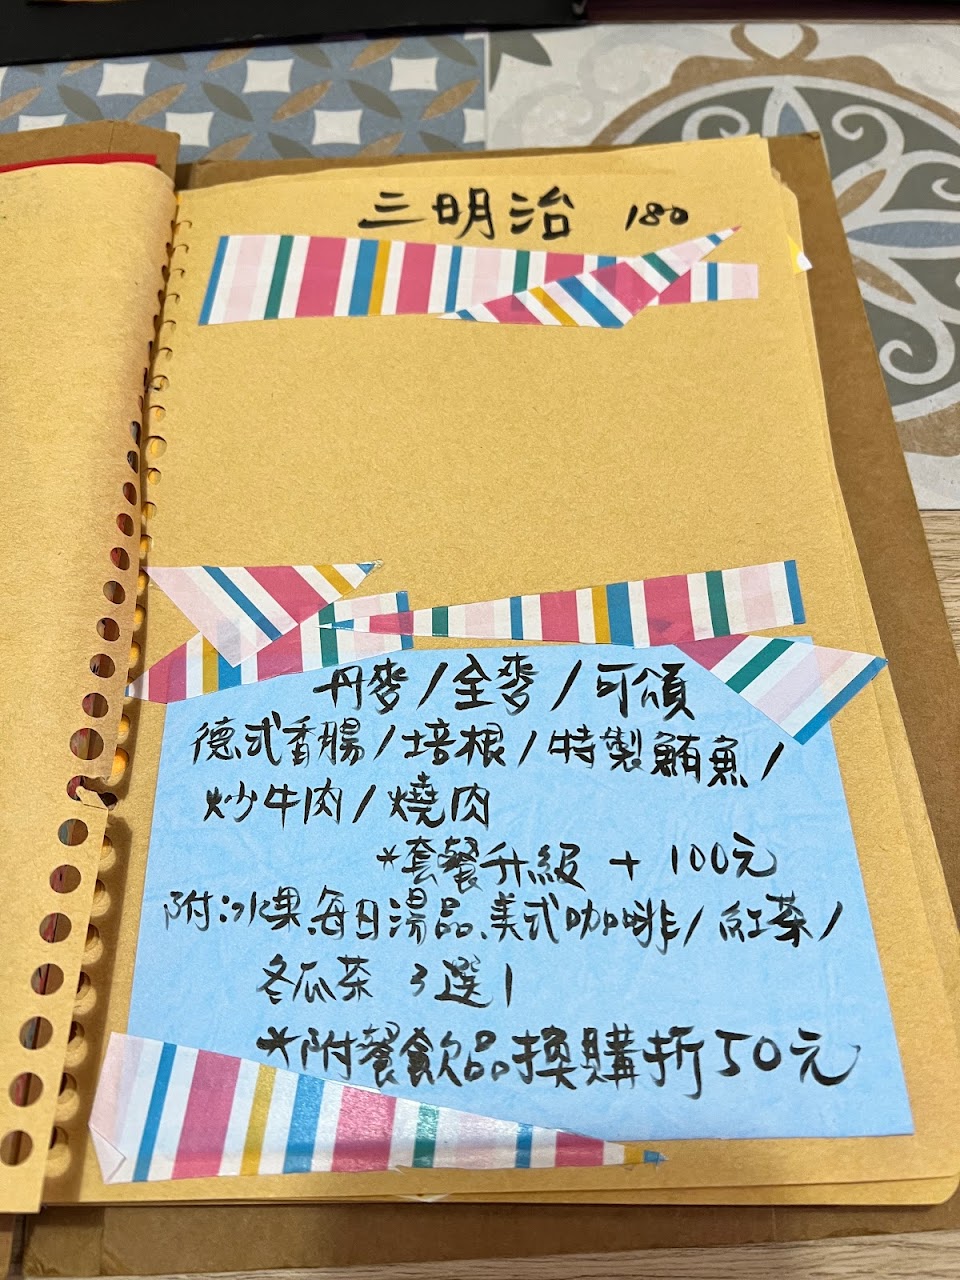 三明治 180
丹麥/全麥/可頌
德式香腸/培根/特製鮪魚/
炒牛肉/燒肉
*套餐升級 + 100元
附水果.每日湯品.美式咖啡/紅茶/
冬瓜茶 3選1
*附餐飲品換購折50元